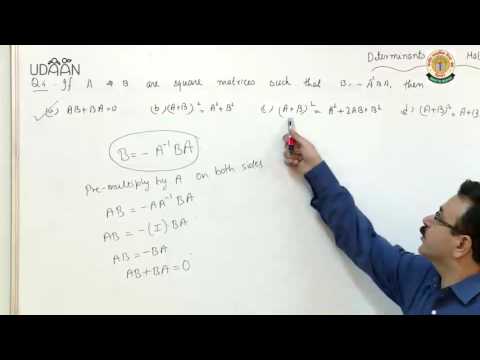 UDAAN
Determinants
Q4. If A & B are square matrices such that B = -A⁻¹BA, then
(a) AB+BA=0 (b) (A+B)² = A²+B² (c) (A+B)² = A²+2AB+B² (d) (A+B)² = A+B
B = - A⁻¹ BA
Pre-multiply by A on both sides
AB = -AA⁻¹ BA
AB = -(I) BA
AB = -BA
AB+BA = 0